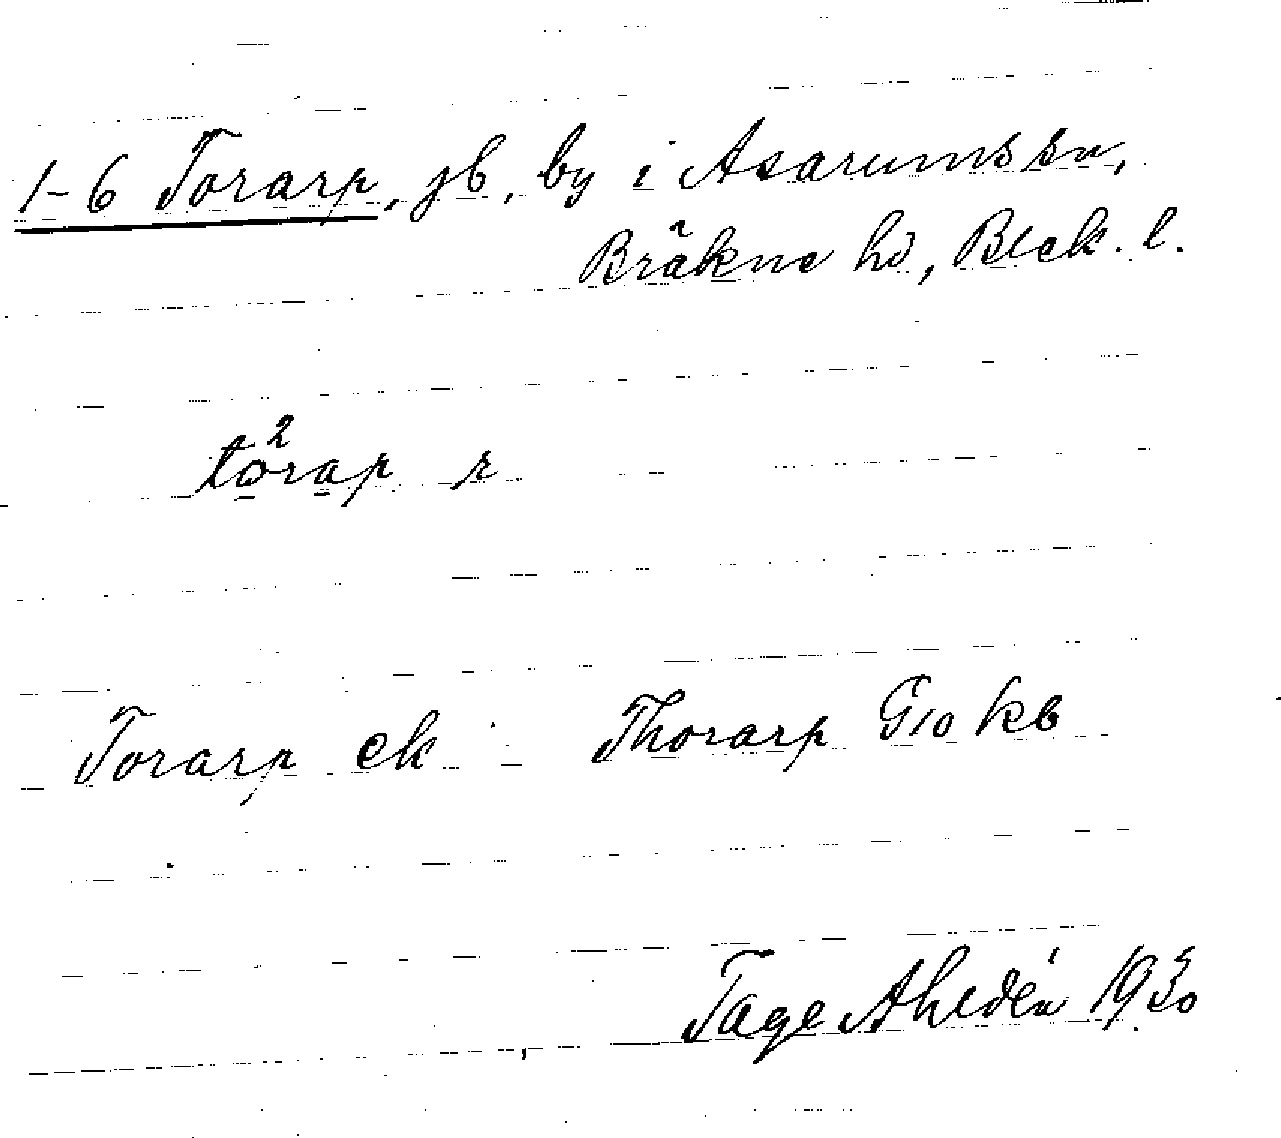 1-6 Torarp, jb, by i Asarums sn,
Bräkne hd, Blek. l.
to²rap r
Torarp ek Thorarp G10 kb
Tage Ahldén 1930